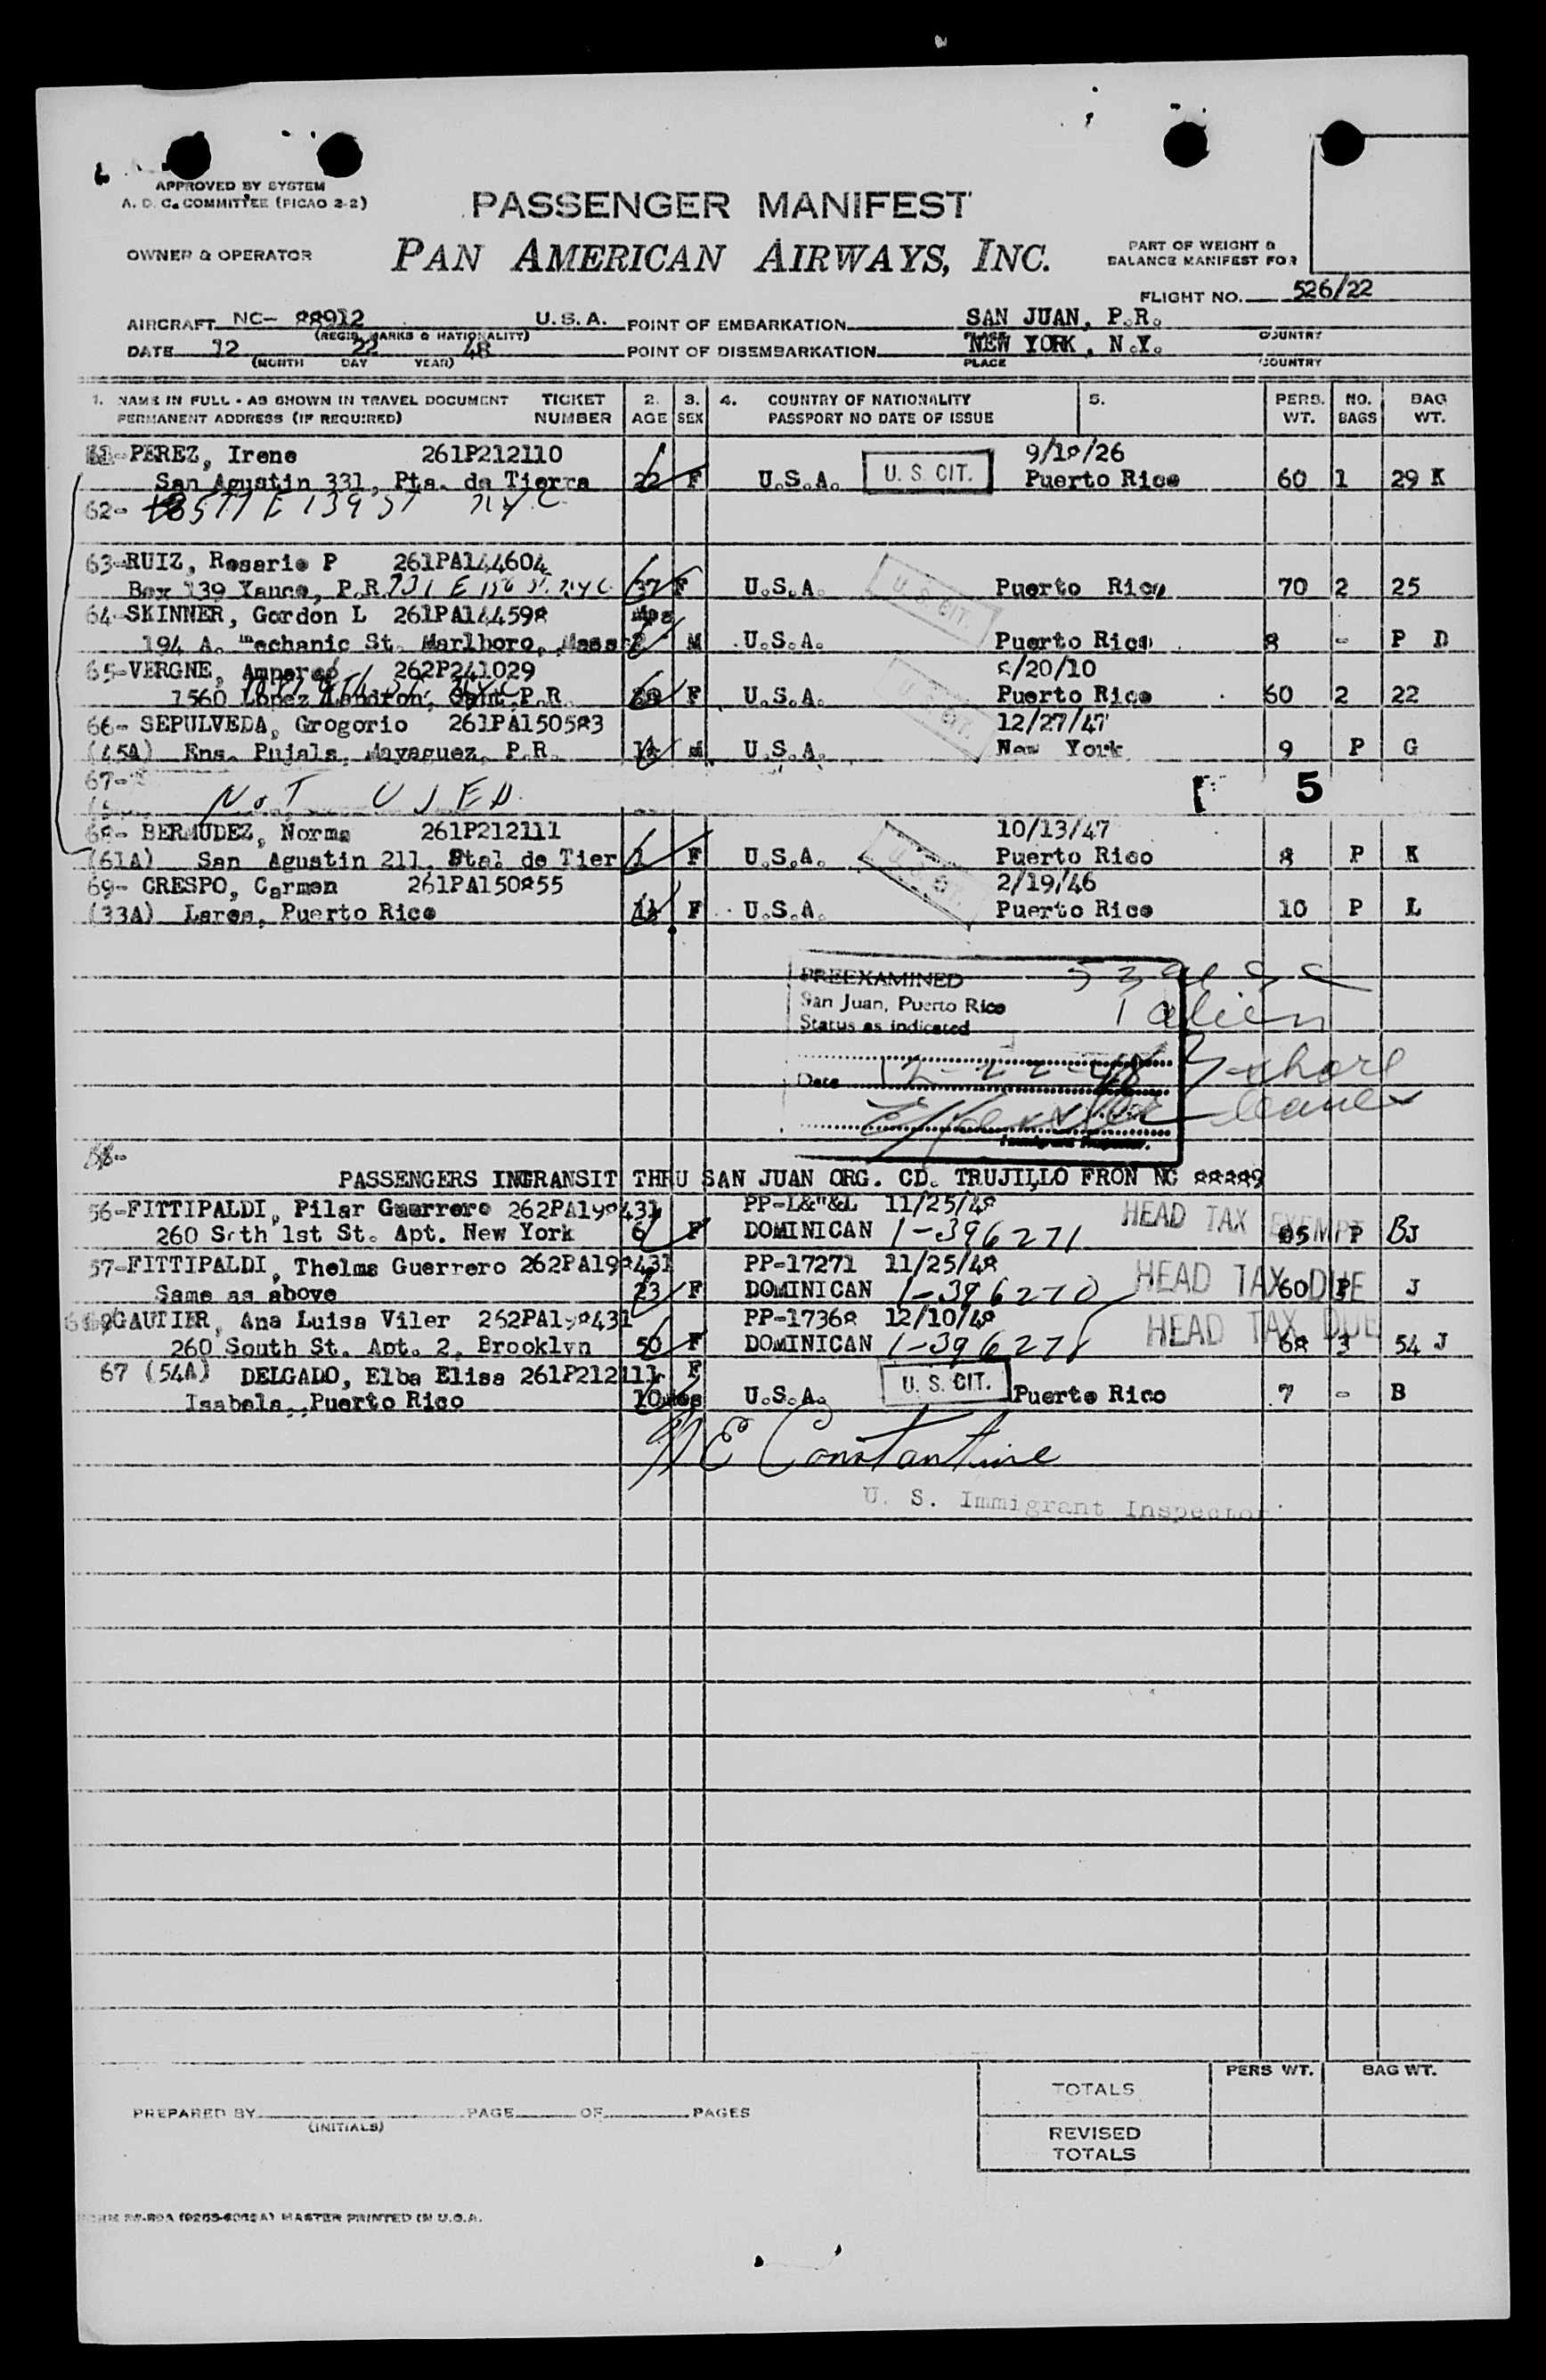 APPROVED BY SYSTEM
A. D. C. COMMITTEE (PICAO 2-2)
PASSENGER MANIFEST
OWNER & OPERATOR
PAN AMERICAN AIRWAYS, INC.
PART OF WEIGHT &
BALANCE MANIFEST FOR
FLIGHT NO. 526/22
AIRCRAFT NC- 88912 U.S.A. POINT OF EMBARKATION SAN JUAN, P.R.
(REGIS. MARKS & NATIONALITY) PLACE COUNTRY
DATE 12 22 48 POINT OF DISEMBARKATION NEW YORK, N.Y.
(MONTH DAY YEAR) PLACE COUNTRY
1. NAME IN FULL - AS SHOWN IN TRAVEL DOCUMENT TICKET 2. 3. 4. COUNTRY OF NATIONALITY 5. PERS. NO. BAG
PERMANENT ADDRESS (IF REQUIRED) NUMBER AGE SEX PASSPORT NO DATE OF ISSUE WT. BAGS WT.
PEREZ, Irene 261P212110 9/18/26
San Agustin 331, Pta. de Tierra 22 F U.S.A. U. S. CIT. Puerto Rico 60 1 29 K
62- 577 E 139 ST NYC
63-RUIZ, Rosario P 261PA144604
Box 139 Yauco, P.R. 731 E 156 St. NYC 37 F U.S.A. U. S. CIT. Puerto Rico 70 2 25
64-SKINNER, Gordon L 261PA144598 mos
194 A. mechanic St. Marlboro, Mass M U.S.A. Puerto Rico 8 - P D
65-VERGNE, Amparo 262P241029 8/20/10
1560 Lopez Landron, P.R. F U.S.A. U. S. CIT. Puerto Rico 60 2 22
66- SEPULVEDA, Grogorio 261PA150583 12/27/47
(45A) Ens. Pujals, Mayaguez, P.R. M U.S.A. New York 9 P G
67-
NOT USED 5
68- BERMUDEZ, Norma 261P212111 10/13/47
(61A) San Agustin 211, Stal de Tier 1 F U.S.A. U. S. CIT. Puerto Rico 8 P K
69- CRESPO, Carmen 261PA150855 2/19/46
(33A) Lares, Puerto Rico F U.S.A. Puerto Rico 10 P L
PREEXAMINED
San Juan, Puerto Rico 1 alien
Status as indicated
Date 12-22-48 shore
leave
Immigrant Inspector.
PASSENGERS INTRANSIT THRU SAN JUAN ORG. CD. TRUJILLO FRON NC 88289
56-FITTIPALDI, Pilar Guerrero 262PA198431 PP-L&"&L 11/25/48 HEAD TAX EXEMPT
260 Soth 1st St. Apt. New York F DOMINICAN 1-396271 P BJ
57-FITTIPALDI, Thelma Guerrero 262PA198431 PP-17271 11/25/48 HEAD TAX DUE
Same as above 23 F DOMINICAN 1-396270 60 P J
GAUTIER, Ana Luisa Viler 262PA198431 PP-17368 12/10/48 HEAD TAX DUE
260 South St. Apt. 2, Brooklyn 50 F DOMINICAN 1-396278 68 3 54 J
67 (54A) DELGADO, Elba Elisa 261P212111 F
Isabela, Puerto Rico 10mos U.S.A. U. S. CIT. Puerto Rico 7 - B
Constantine
U. S. Immigrant Inspector
PERS WT. BAG WT.
TOTALS
PREPARED BY PAGE OF PAGES
(INITIALS)
REVISED
TOTALS
MASTER PRINTED IN U.S.A.